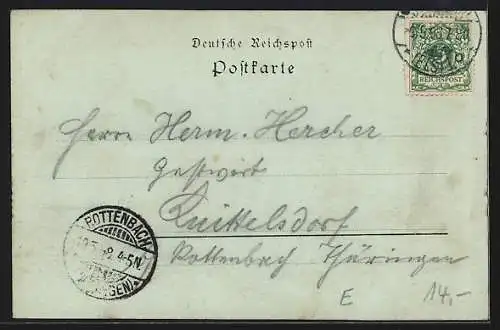 Deutsche Reichspost
Postkarte
REICHSPOST
Herrn Herm. Hercher
Gastwirt
Quittelsdorf
Rottenbach Thüringen
ROTTENBACH
4-5N.
E
14,-